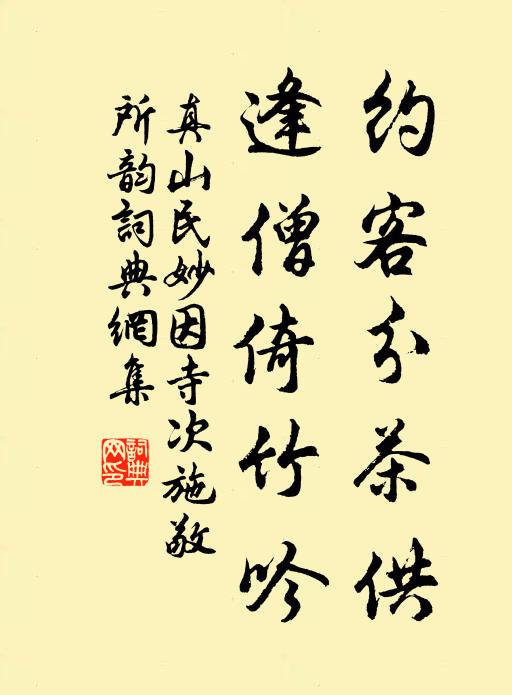 约客分茶供
逢僧倚竹吟
真山民妙因寺次施敬
所韵詞典網集
詞典网印